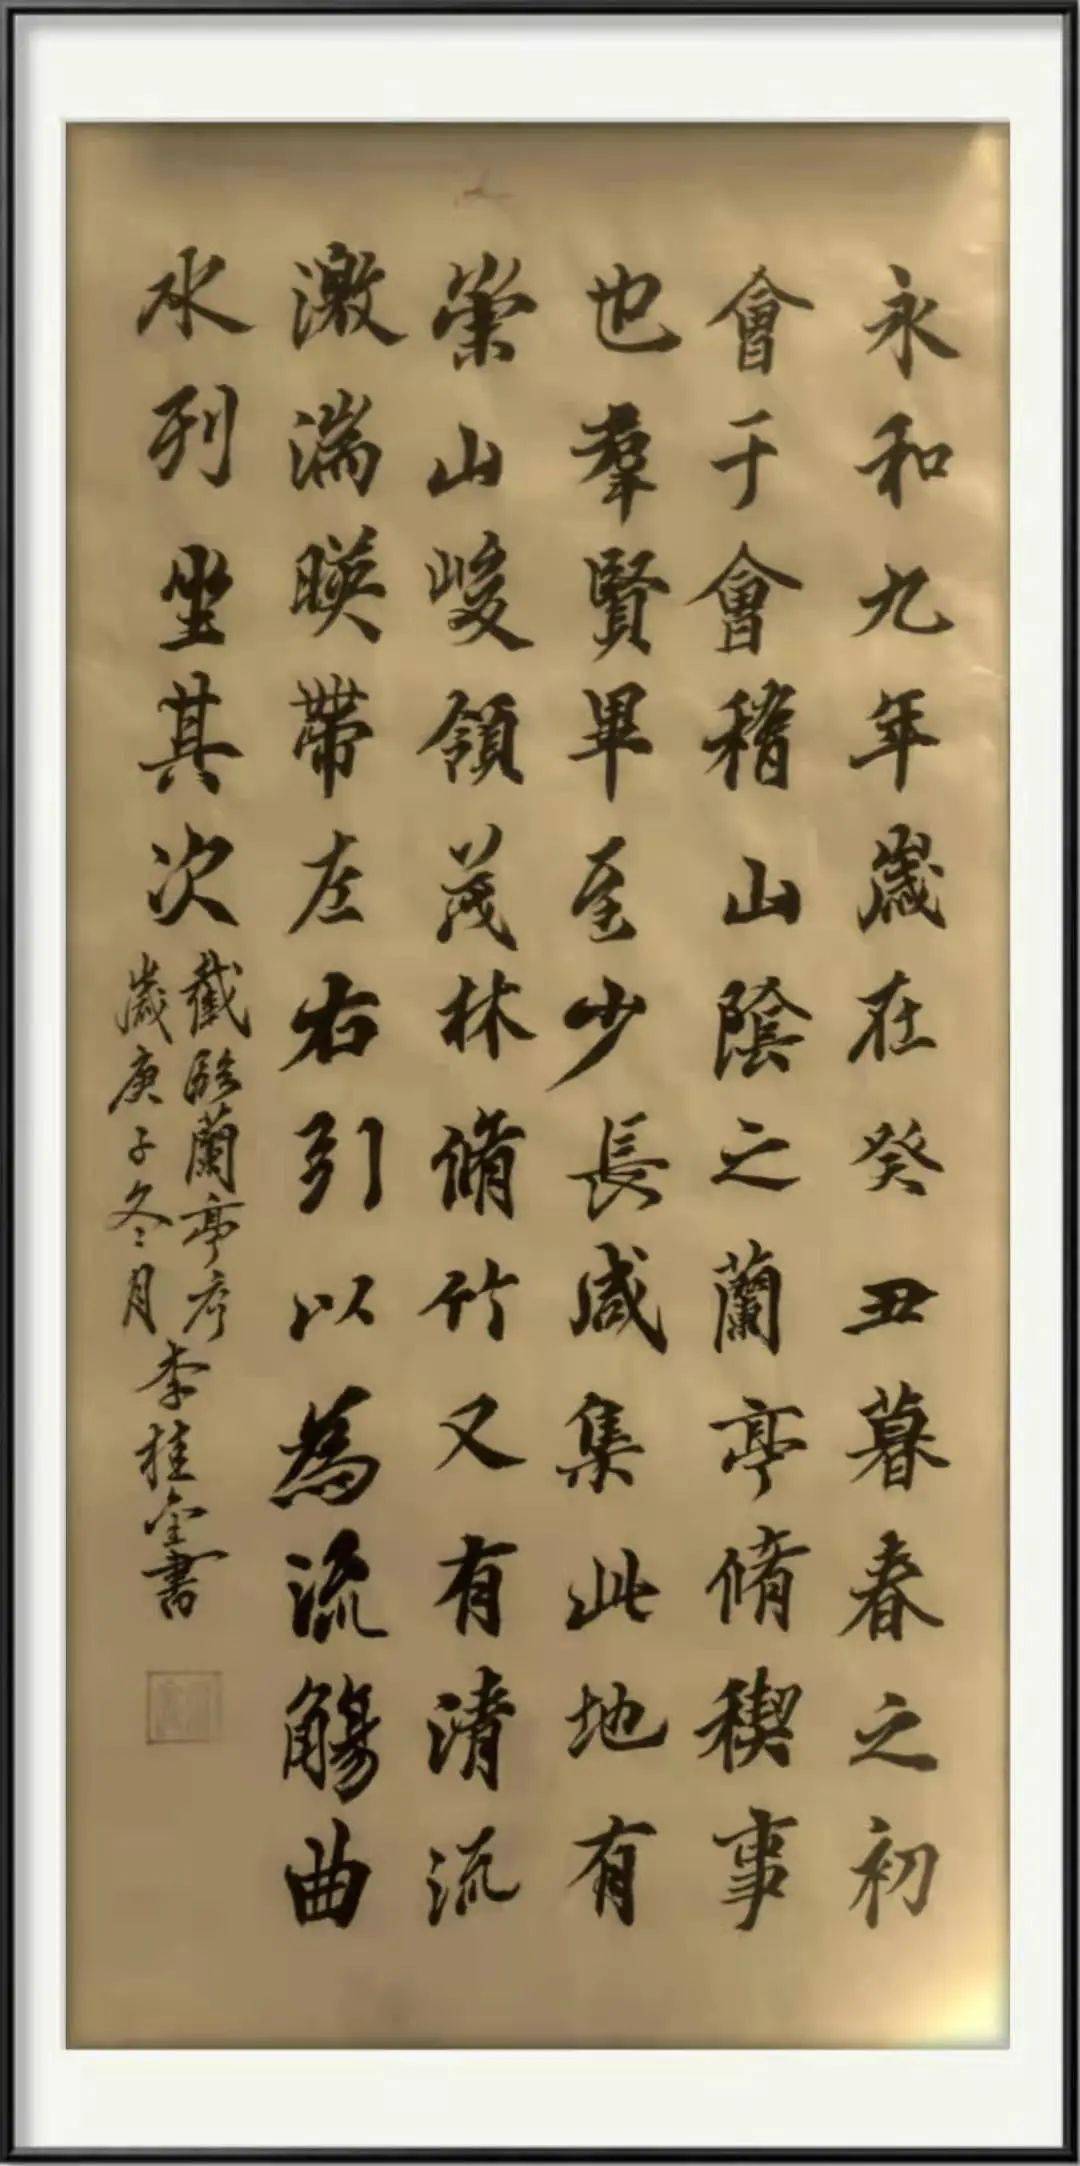 永和九年歲在癸丑暮春之初
會于會稽山陰之蘭亭脩稧事
也羣賢畢至少長咸集此地有
崇山峻領茂林脩竹又有清流
激湍暎帶左右引以為流觴曲
水列坐其次
截臨蘭亭序
歲庚子冬月
李桂金書